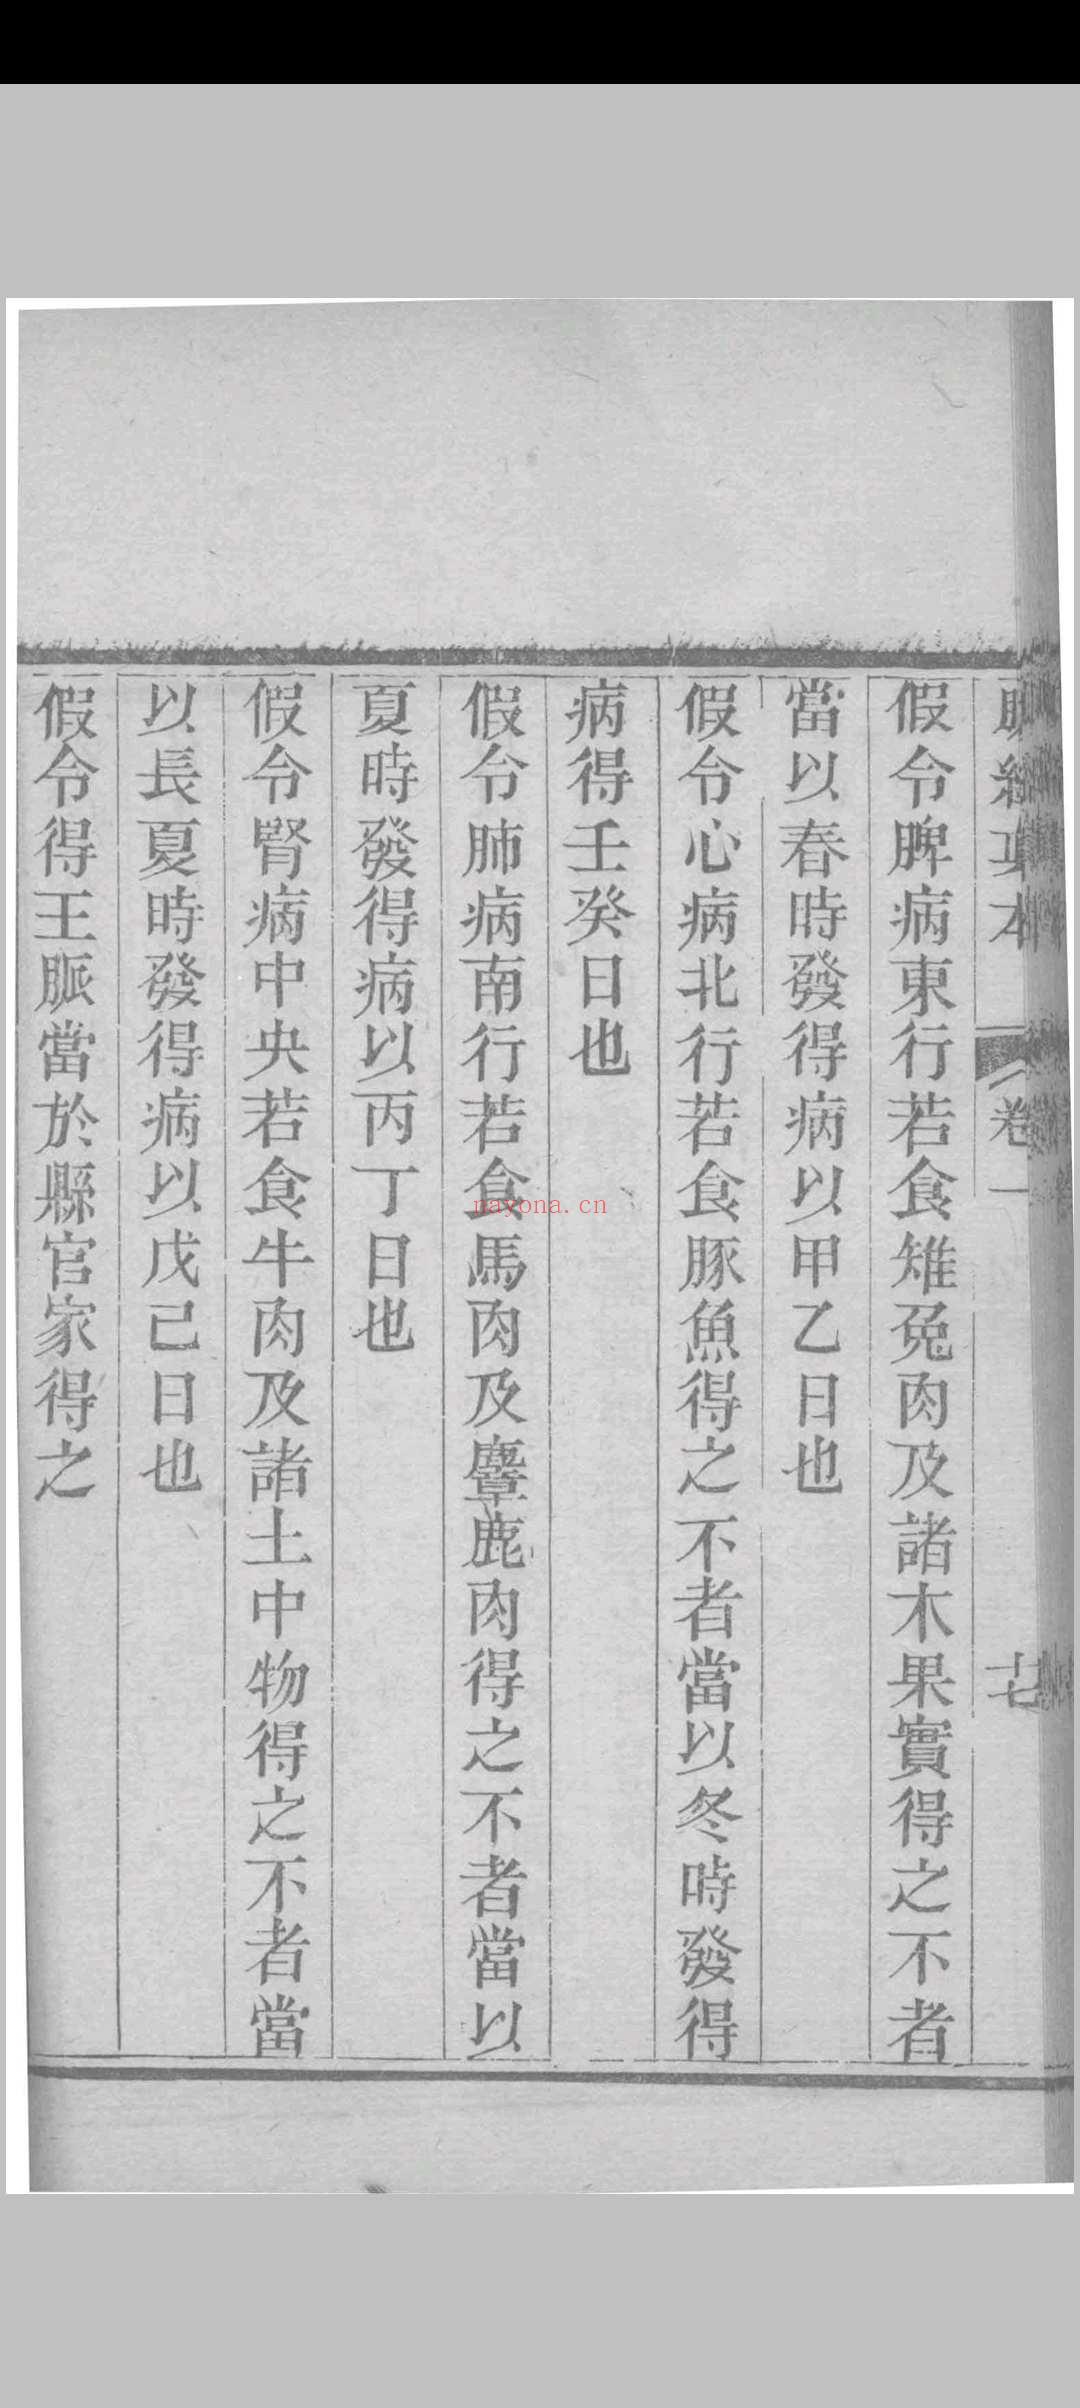 脉經真本 卷一 十七
假令脾病東行若食雉兔肉及諸木果實得之不者
當以春時發得病以甲乙日也
假令心病北行若食豚魚得之不者當以冬時發得
病得壬癸日也
假令肺病南行若食馬肉及麞鹿肉得之不者當以
夏時發得病以丙丁日也
假令腎病中央若食牛肉及諸土中物得之不者當
以長夏時發得病以戊己日也
假令得王脈當於縣官家得之
nayona.cn